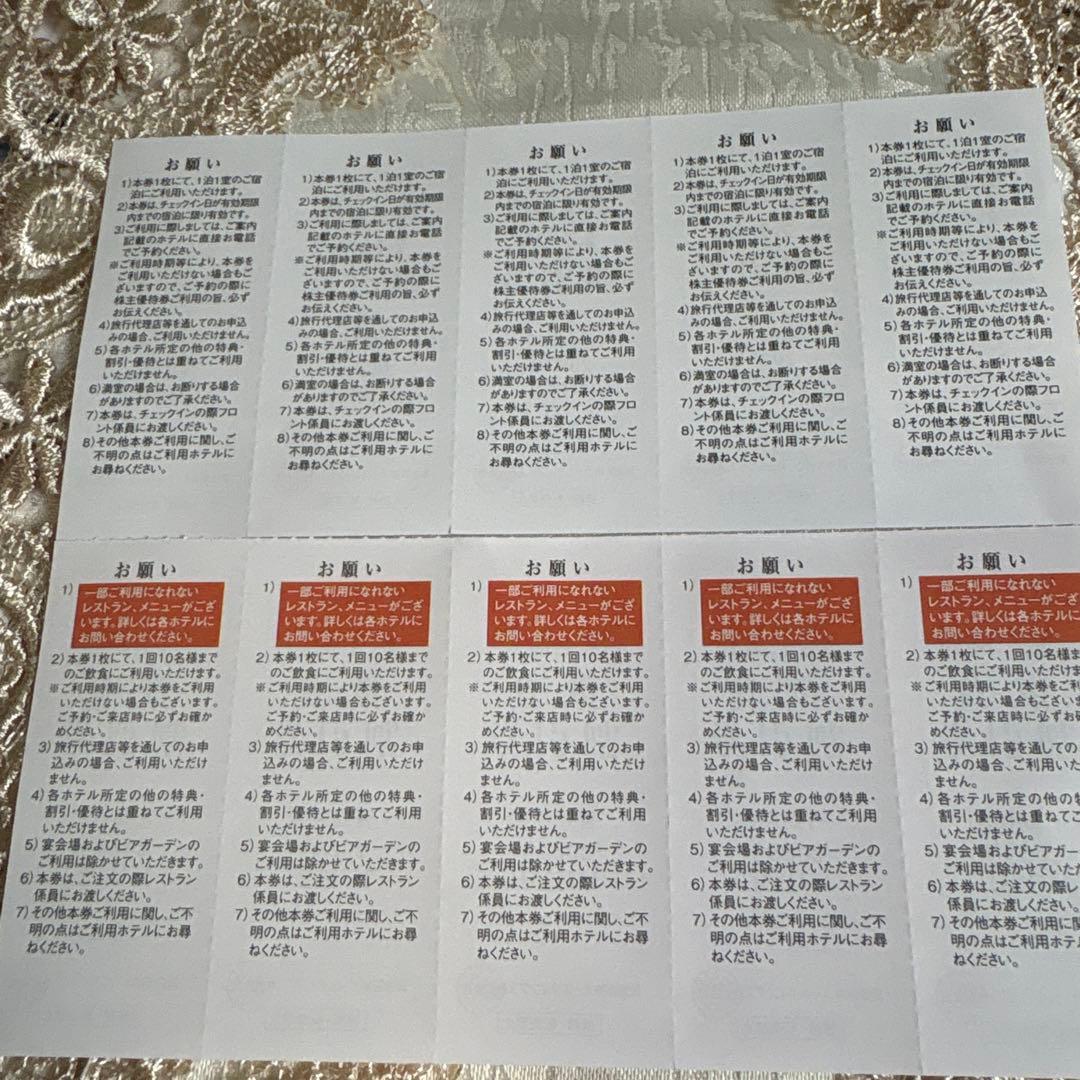 お願い
1)本券1枚にて、1泊1室のご宿
泊にご利用いただけます。
2)本券は、チェックイン日が有効期限
内までの宿泊に限り有効です。
3)ご利用に際しましては、ご案内
記載のホテルに直接お電話
でご予約ください。
※ご利用時期等により、本券を
ご利用いただけない場合もご
ざいますので、ご予約の際に
株主優待券ご利用の旨、必ず
お伝えください。
4)旅行代理店等を通してのお申込
みの場合、ご利用いただけません。
5)各ホテル所定の他の特典・
割引・優待とは重ねてご利用
いただけません。
6)満室の場合は、お断りする場合
がありますのでご了承ください。
7)本券は、チェックインの際フロ
ント係員にお渡しください。
8)その他本券ご利用に関し、ご
不明の点はご利用ホテルに
お尋ねください。
お願い
1)本券1枚にて、1泊1室のご宿
泊にご利用いただけます。
2)本券は、チェックイン日が有効期限
内までの宿泊に限り有効です。
3)ご利用に際しましては、ご案内
記載のホテルに直接お電話
でご予約ください。
※ご利用時期等により、本券を
ご利用いただけない場合もご
ざいますので、ご予約の際に
株主優待券ご利用の旨、必ず
お伝えください。
4)旅行代理店等を通してのお申込
みの場合、ご利用いただけません。
5)各ホテル所定の他の特典・
割引・優待とは重ねてご利用
いただけません。
6)満室の場合は、お断りする場合
がありますのでご了承ください。
7)本券は、チェックインの際フロ
ント係員にお渡しください。
8)その他本券ご利用に関し、ご
不明の点はご利用ホテルに
お尋ねください。
お願い
1)本券1枚にて、1泊1室のご宿
泊にご利用いただけます。
2)本券は、チェックイン日が有効期限
内までの宿泊に限り有効です。
3)ご利用に際しましては、ご案内
記載のホテルに直接お電話
でご予約ください。
※ご利用時期等により、本券を
ご利用いただけない場合もご
ざいますので、ご予約の際に
株主優待券ご利用の旨、必ず
お伝えください。
4)旅行代理店等を通してのお申込
みの場合、ご利用いただけません。
5)各ホテル所定の他の特典・
割引・優待とは重ねてご利用
いただけません。
6)満室の場合は、お断りする場合
がありますのでご了承ください。
7)本券は、チェックインの際フロ
ント係員にお渡しください。
8)その他本券ご利用に関し、ご
不明の点はご利用ホテルに
お尋ねください。
お願い
1)本券1枚にて、1泊1室のご宿
泊にご利用いただけます。
2)本券は、チェックイン日が有効期限
内までの宿泊に限り有効です。
3)ご利用に際しましては、ご案内
記載のホテルに直接お電話
でご予約ください。
※ご利用時期等により、本券を
ご利用いただけない場合もご
ざいますので、ご予約の際に
株主優待券ご利用の旨、必ず
お伝えください。
4)旅行代理店等を通してのお申込
みの場合、ご利用いただけません。
5)各ホテル所定の他の特典・
割引・優待とは重ねてご利用
いただけません。
6)満室の場合は、お断りする場合
がありますのでご了承ください。
7)本券は、チェックインの際フロ
ント係員にお渡しください。
8)その他本券ご利用に関し、ご
不明の点はご利用ホテルに
お尋ねください。
お願い
1)本券1枚にて、1泊1室のご宿
泊にご利用いただけます。
2)本券は、チェックイン日が有効期限
内までの宿泊に限り有効です。
3)ご利用に際しましては、ご案内
記載のホテルに直接お電話
でご予約ください。
※ご利用時期等により、本券を
ご利用いただけない場合もご
ざいますので、ご予約の際に
株主優待券ご利用の旨、必ず
お伝えください。
4)旅行代理店等を通してのお申込
みの場合、ご利用いただけません。
5)各ホテル所定の他の特典・
割引・優待とは重ねてご利用
いただけません。
6)満室の場合は、お断りする場合
がありますのでご了承ください。
7)本券は、チェックインの際フロ
ント係員にお渡しください。
8)その他本券ご利用に関し、ご
不明の点はご利用ホテルに
お尋ねください。
お願い
1) 一部ご利用になれない
レストラン、メニューがござ
います。詳しくは各ホテルに
お問い合わせください。
2)本券1枚にて、1回10名様まで
のご飲食にご利用いただけます。
※ご利用時期により本券をご利用
いただけない場合もございます。
ご予約・ご来店時に必ずお確か
めください。
3)旅行代理店等を通してのお申
込みの場合、ご利用いただけ
ません。
4)各ホテル所定の他の特典・
割引・優待とは重ねてご利用
いただけません。
5)宴会場およびビアガーデンの
ご利用は除かせていただきます。
6)本券は、ご注文の際レストラン
係員にお渡しください。
7)その他本券ご利用に関し、ご不
明の点はご利用ホテルにお尋
ねください。
お願い
1) 一部ご利用になれない
レストラン、メニューがござ
います。詳しくは各ホテルに
お問い合わせください。
2)本券1枚にて、1回10名様まで
のご飲食にご利用いただけます。
※ご利用時期により本券をご利用
いただけない場合もございます。
ご予約・ご来店時に必ずお確か
めください。
3)旅行代理店等を通してのお申
込みの場合、ご利用いただけ
ません。
4)各ホテル所定の他の特典・
割引・優待とは重ねてご利用
いただけません。
5)宴会場およびビアガーデンの
ご利用は除かせていただきます。
6)本券は、ご注文の際レストラン
係員にお渡しください。
7)その他本券ご利用に関し、ご不
明の点はご利用ホテルにお尋
ねください。
お願い
1) 一部ご利用になれない
レストラン、メニューがござ
います。詳しくは各ホテルに
お問い合わせください。
2)本券1枚にて、1回10名様まで
のご飲食にご利用いただけます。
※ご利用時期により本券をご利用
いただけない場合もございます。
ご予約・ご来店時に必ずお確か
めください。
3)旅行代理店等を通してのお申
込みの場合、ご利用いただけ
ません。
4)各ホテル所定の他の特典・
割引・優待とは重ねてご利用
いただけません。
5)宴会場およびビアガーデンの
ご利用は除かせていただきます。
6)本券は、ご注文の際レストラン
係員にお渡しください。
7)その他本券ご利用に関し、ご不
明の点はご利用ホテルにお尋
ねください。
お願い
1) 一部ご利用になれない
レストラン、メニューがござ
います。詳しくは各ホテルに
お問い合わせください。
2)本券1枚にて、1回10名様まで
のご飲食にご利用いただけます。
※ご利用時期により本券をご利用
いただけない場合もございます。
ご予約・ご来店時に必ずお確か
めください。
3)旅行代理店等を通してのお申
込みの場合、ご利用いただけ
ません。
4)各ホテル所定の他の特典・
割引・優待とは重ねてご利用
いただけません。
5)宴会場およびビアガーデンの
ご利用は除かせていただきます。
6)本券は、ご注文の際レストラン
係員にお渡しください。
7)その他本券ご利用に関し、ご不
明の点はご利用ホテルにお尋
ねください。
お願い
1) 一部ご利用になれない
レストラン、メニューがござ
います。詳しくは各ホテルに
お問い合わせください。
2)本券1枚にて、1回10名様
のご飲食にご利用いただけ
※ご利用時期により本券をご利
いただけない場合もござい
ご予約・ご来店時に必ずお
めください。
3)旅行代理店等を通しての
込みの場合、ご利用いただ
ません。
4)各ホテル所定の他の特
割引・優待とは重ねてご
いただけません。
5)宴会場およびビアガーデ
ご利用は除かせていただ
6)本券は、ご注文の際レス
係員にお渡しください。
7)その他本券ご利用に
明の点はご利用ホテル
ねください。